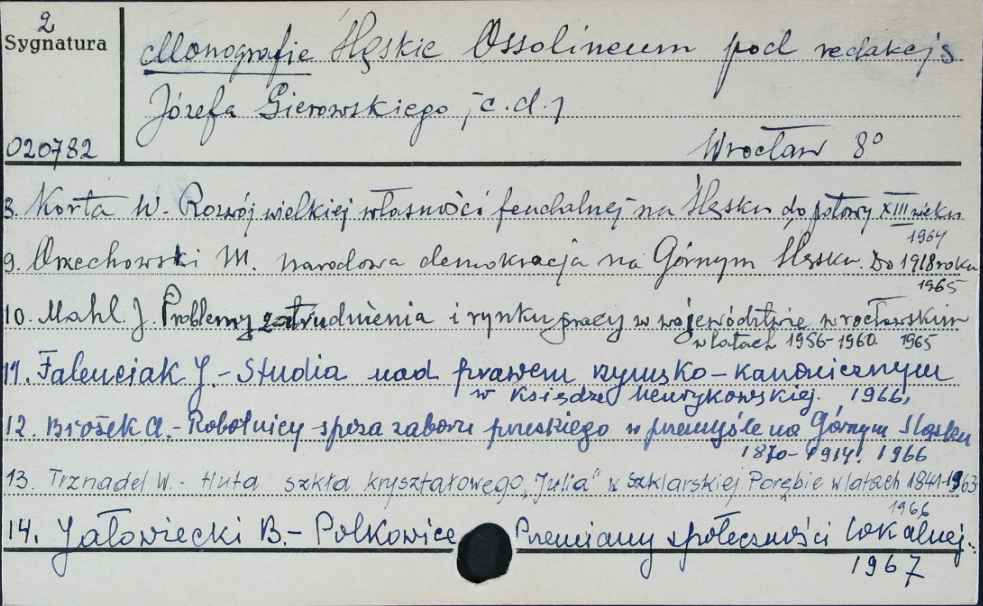 2
Sygnatura
Monografie Śląskie Ossolineum pod redakcją
Józefa Gierowskiego, c.d.,
020782
Wrocław 8°
8. Korta W. - Rozwój wielkiej własności feudalnej na Śląsku do połowy XIII wieku
1964
9. Orzechowski M. Narodowa demokracja na Górnym Śląsku. Do 1918 roku
1965
10. Mahl J. Problemy zatrudnienia i rynku pracy w województwie wrocławskim
w latach 1956-1960 1965
11. Falenciak J. - Studia nad prawem rzymsko-kanonicznym
w Księdze Henrykowskiej. 1966,
12. Brożek A. - Robotnicy spoza zaboru pruskiego w przemyśle na Górnym Śląsku
1870-1914. 1966
13. Trznadel W. - Huta szkła kryształowego "Julia" w Szklarskiej Porębie w latach 1841-1963
1966
14. Jałowiecki B. - Polkowice Przemiany społeczności lokalnej.
1967